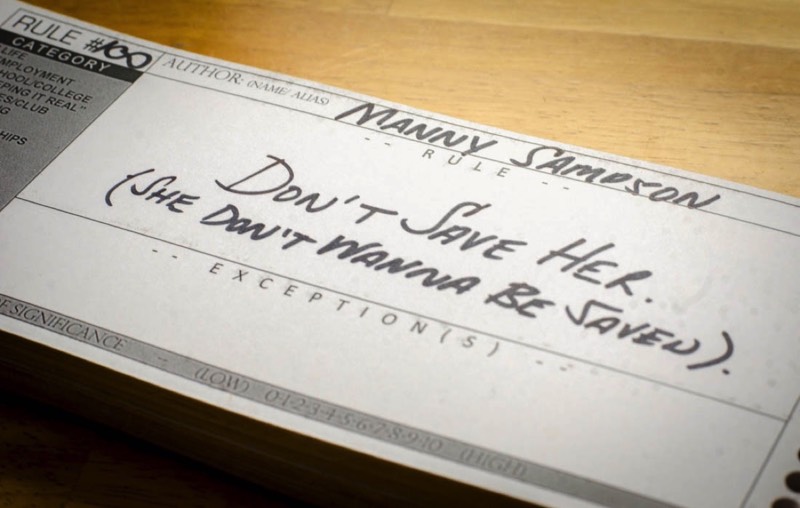 RULE #100
CATEGORY
LIFE
EMPLOYMENT
SCHOOL/COLLEGE
"KEEPING IT REAL"
/CLUB
AUTHOR: (NAME/ALIAS)
MANNY SAMPSON
-- RULE --
DON'T SAVE HER.
(SHE DON'T WANNA BE SAVED).
-- EXCEPTION(S) --
SIGNIFICANCE -- (LOW) 0-1-2-3-4-5-6-7-8-9-10 (HIGH)